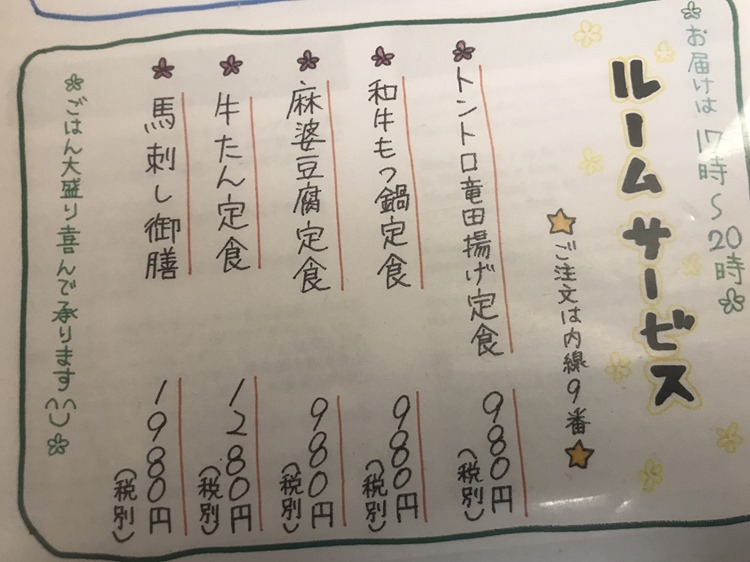 お届けは17時〜20時
ルームサービス
ご注文は内線9番
トントロ竜田揚げ定食 980円(税別)
和牛もつ鍋定食 980円(税別)
麻婆豆腐定食 980円(税別)
牛たん定食 1280円(税別)
馬刺し御膳 1980円(税別)
ごはん大盛り喜んで承ります